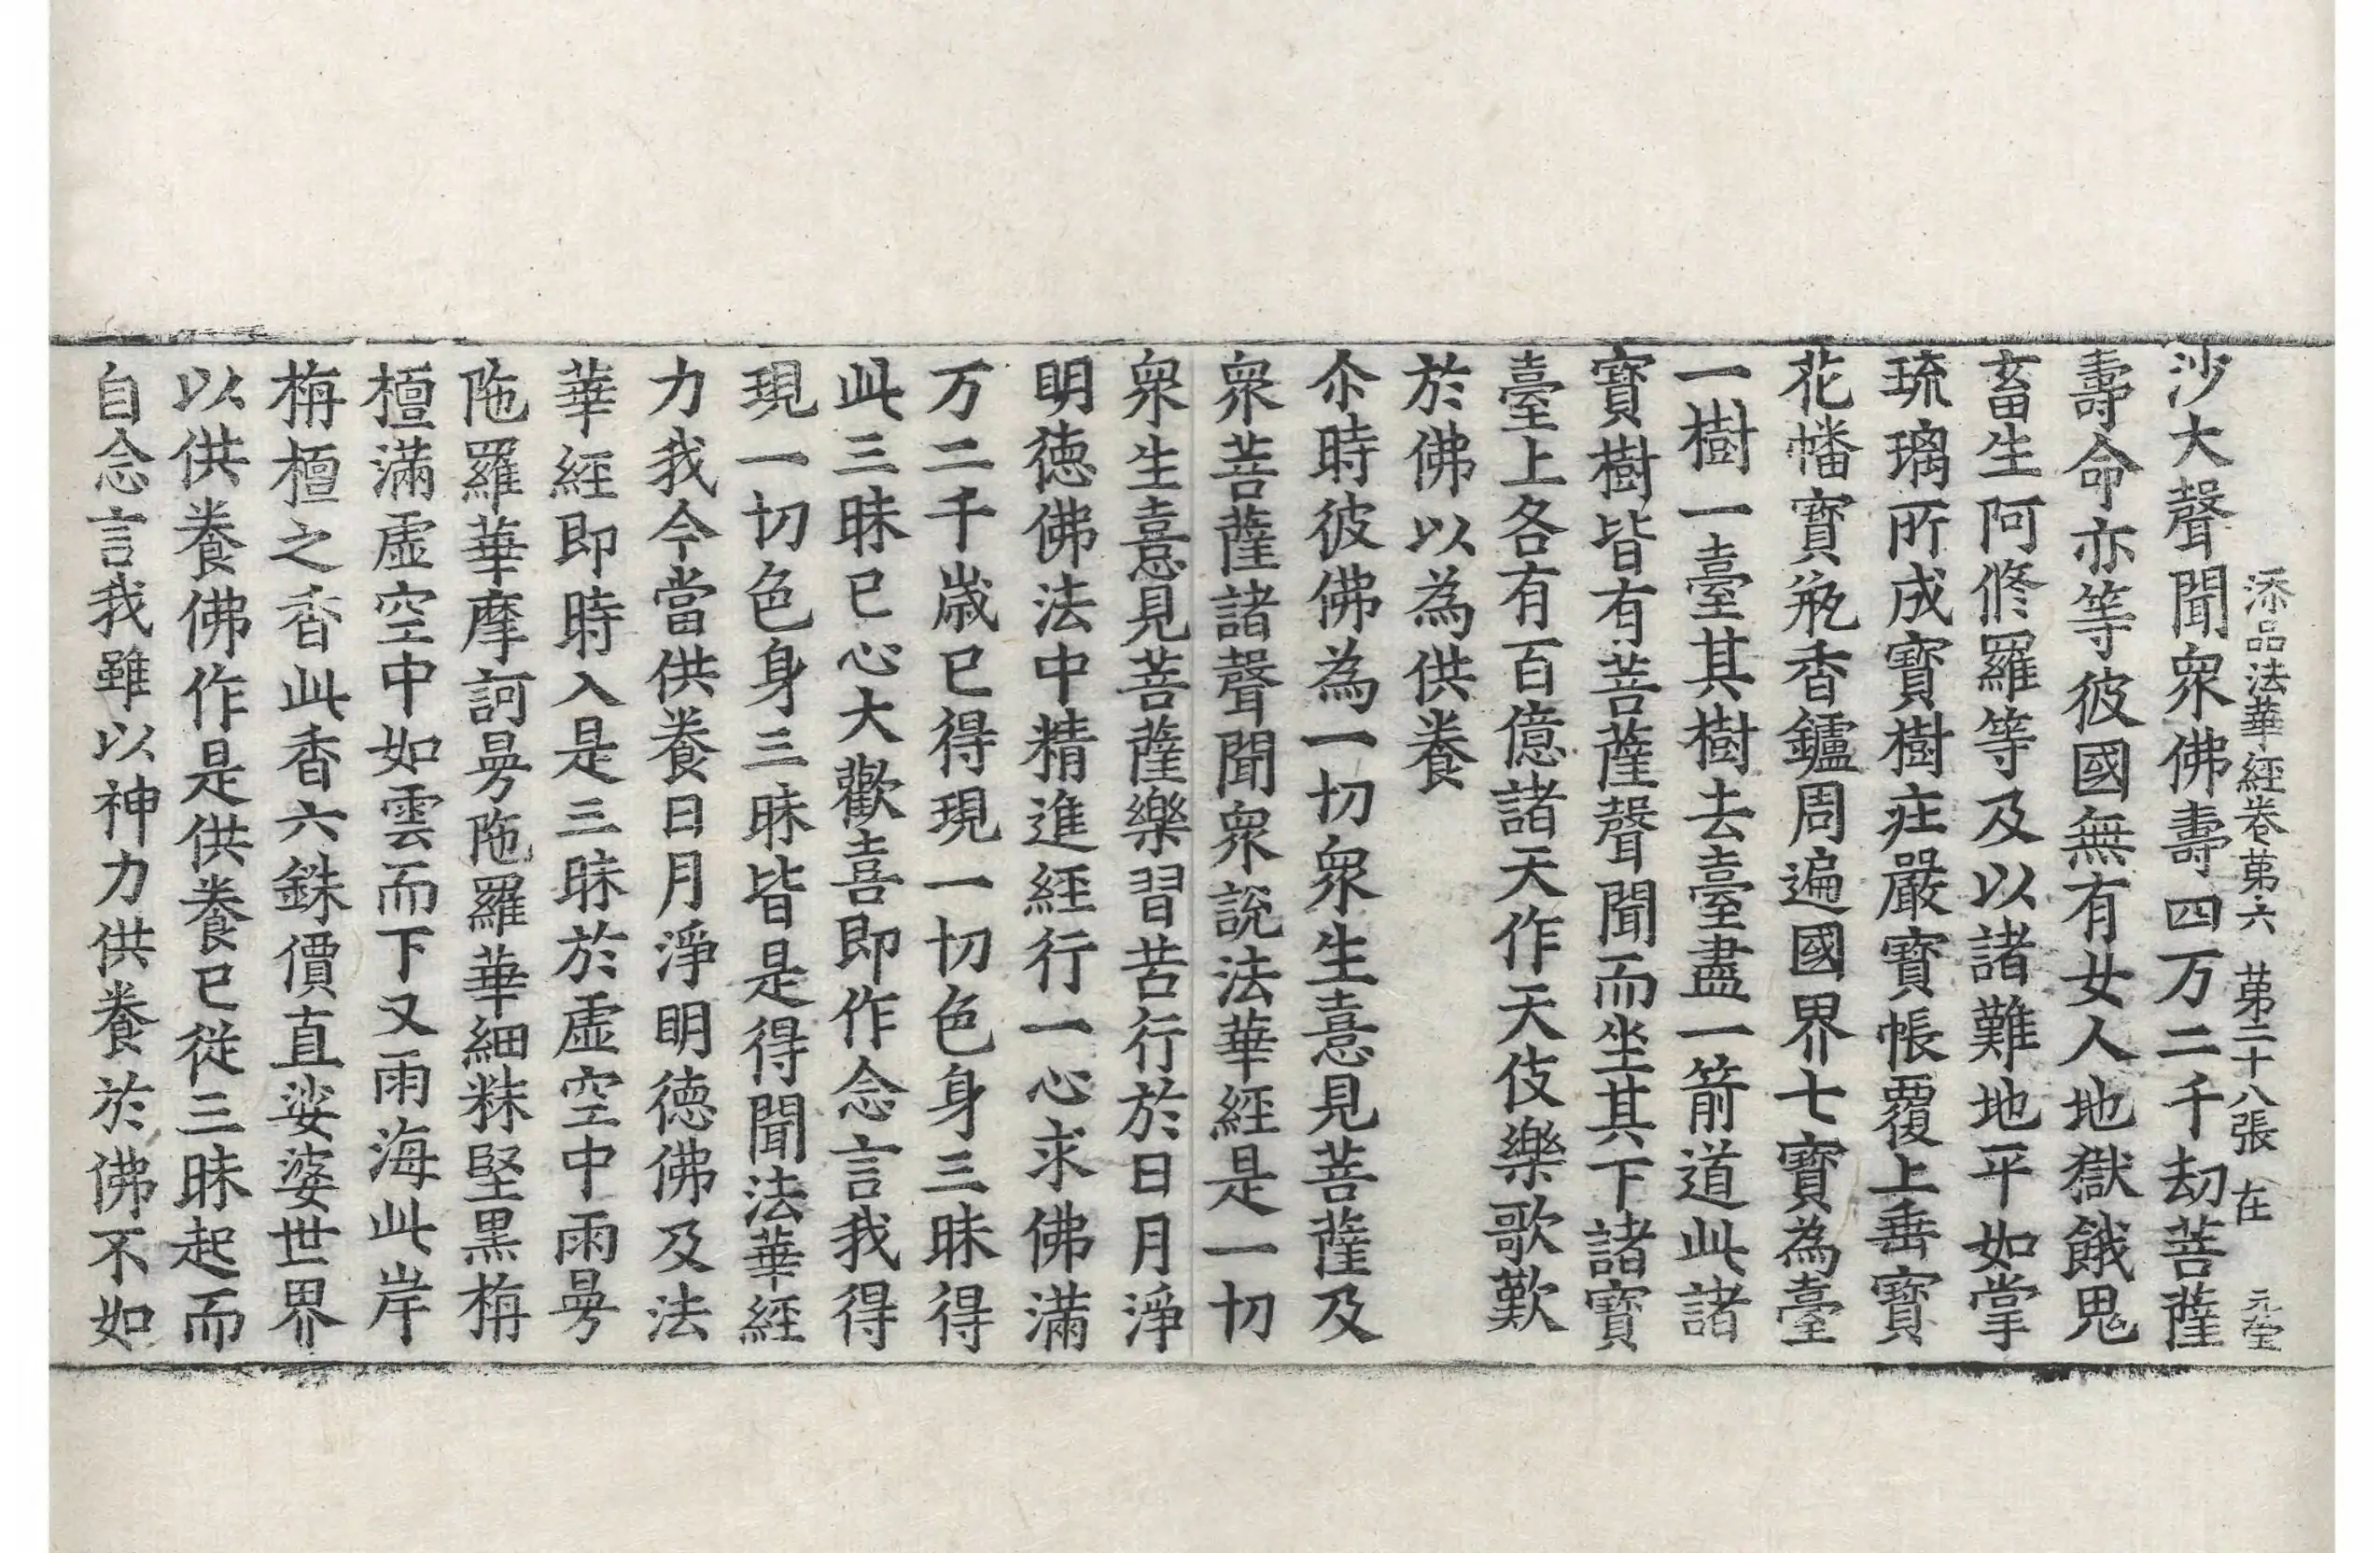 添品法華経卷苐六 苐二十八張 在 元堅
沙大聲聞衆佛壽四万二千劫菩薩
壽命亦等彼國無有女人地獄餓鬼
畜生阿脩羅等及以諸難地平如掌
琉璃所成寳樹庄嚴寳帳覆上垂寳
花幡寳瓶香鑪周遍國界七寳為臺
一樹一臺其樹去臺盡一箭道此諸
寳樹皆有菩薩聲聞而坐其下諸寳
臺上各有百億諸天作天伎樂歌歎
於佛以為供養
尒時彼佛為一切衆生憙見菩薩及
衆菩薩諸聲聞衆説法華経是一切
衆生憙見菩薩樂習苦行於日月淨
明徳佛法中精進経行一心求佛滿
万二千歳已得現一切色身三昧得
此三昧已心大歡喜即作念言我得
現一切色身三昧皆是得聞法華経
力我今當供養日月淨明徳佛及法
華経即時入是三昧於虚空中雨曼
陁羅華摩訶曼陁羅華細粖堅黒栴
檀滿虚空中如雲而下又雨海此岸
栴檀之香此香六銖價直娑婆世界
以供養佛作是供養已従三昧起而
自念言我雖以神力供養於佛不如